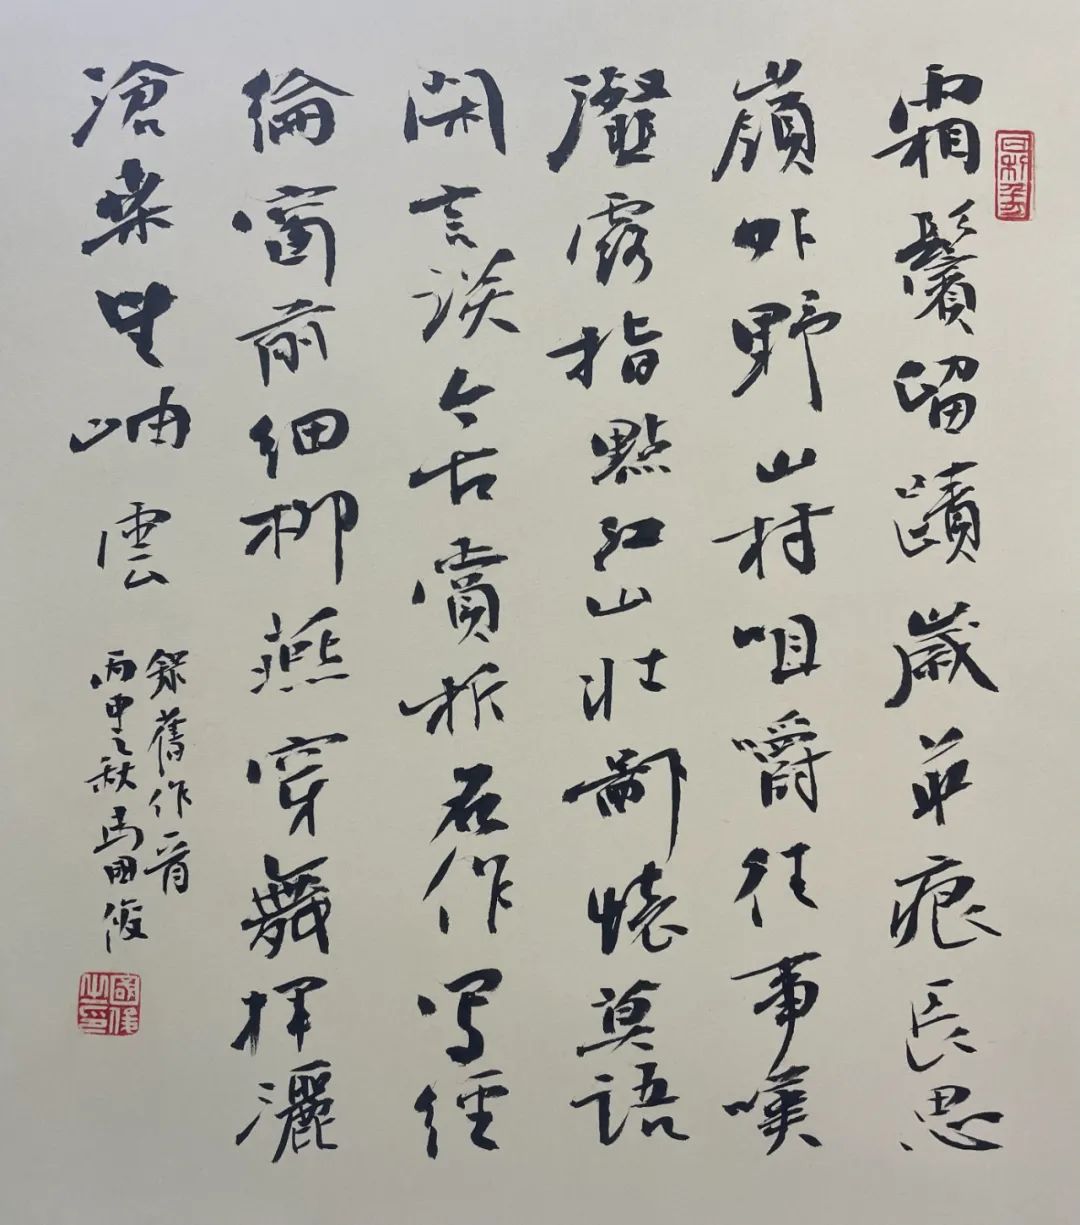 霜鬢留蹟歲痕長思
嶺外野山村咀嚼往事嘆
露指點江山壯鄙懷莫語
閑言談今古賞析名作寫經
綸窗前細柳燕穿舞揮灑
滄桑岫雲
錄舊作一首
丙申之秋馬国俊
國俊之印